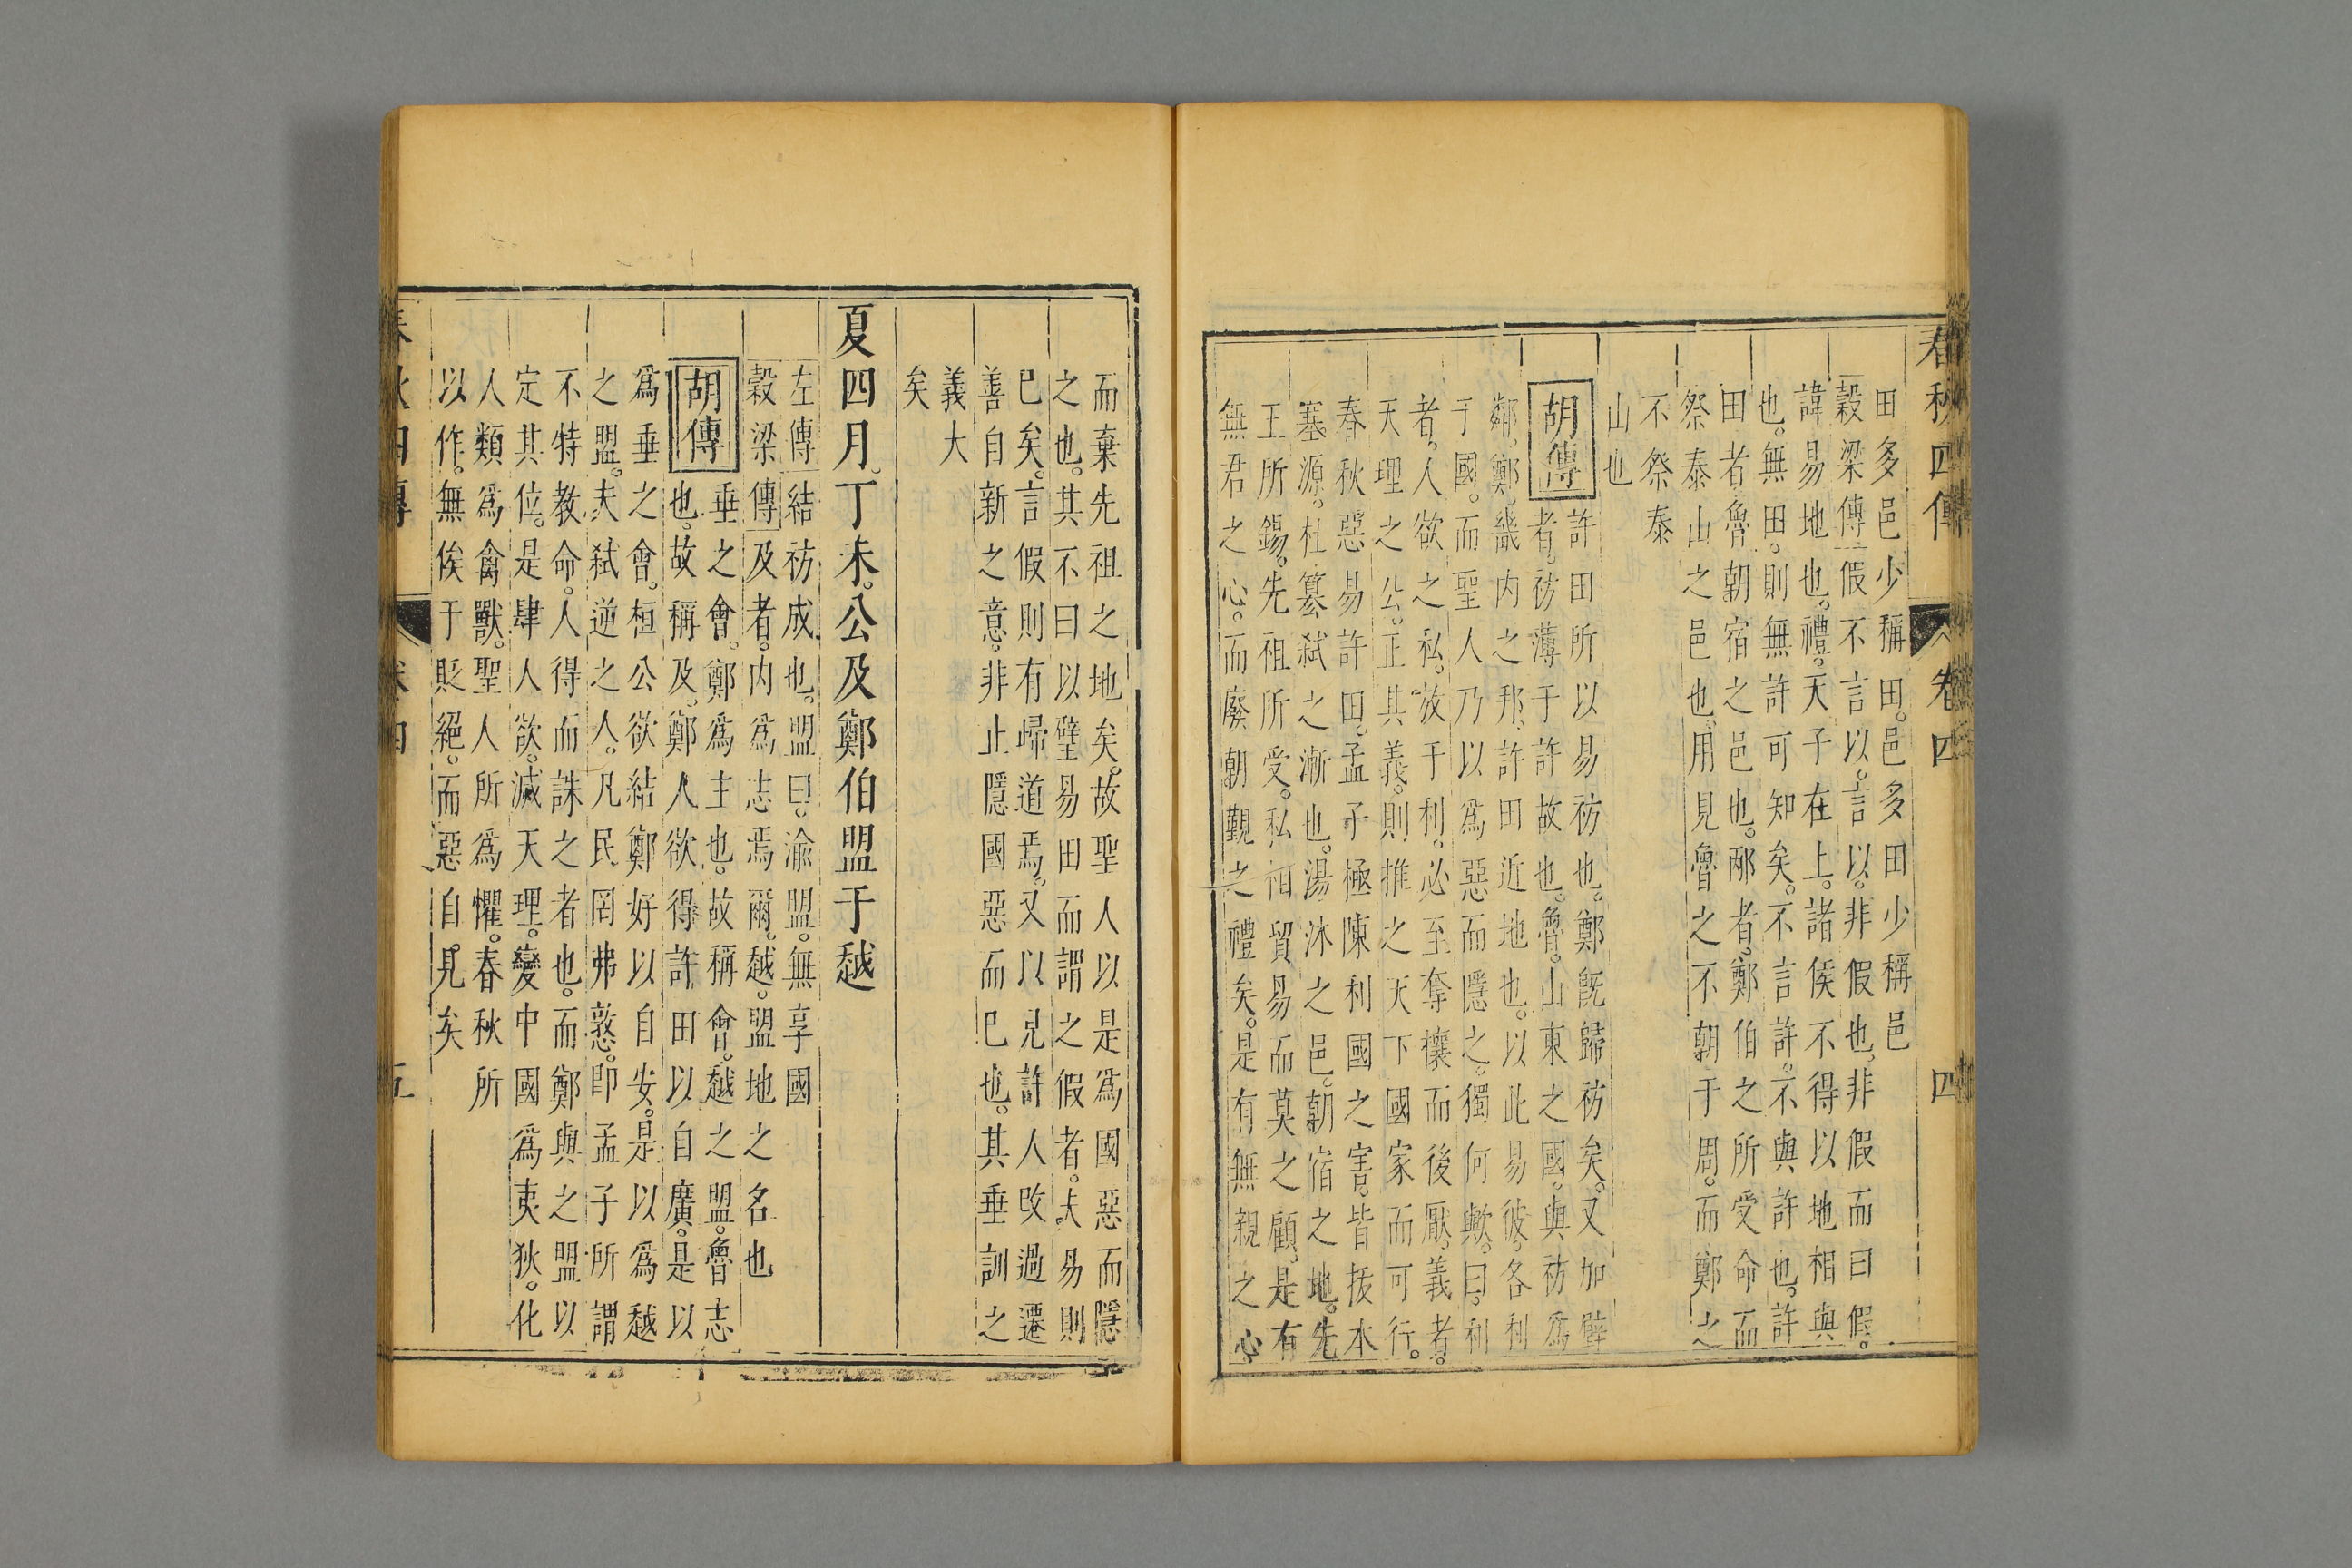 春秋四傳 卷四 四
田多邑少稱田。邑多田少稱邑
穀梁傳假不言以。言以。非假也。非假而曰假。
諱易地也。禮。天子在上。諸侯不得以地相與
也。無田。則無許可知矣。不言許。不與許也。許
田者。魯朝宿之邑也。邴者。鄭伯之所受命而
祭泰山之邑也。用見魯之不朝于周。而鄭之
不祭泰
山也
胡傳
許田所以易祊也。鄭旣歸祊矣。又加璧
者。祊薄于許故也。魯。山東之國。與祊爲
鄰。鄭。畿内之邦。許田近地也。以此易彼。各利
于國。而聖人乃以爲惡而隱之。獨何歟。曰。利
者。人欲之私。放于利。必至奪攘而後厭。義者。
天理之公。正其義。則推之天下國家而可行。
春秋惡易許田。孟子極陳利國之害。皆拔本
塞源。杜簒弑之漸也。湯沐之邑。朝宿之地。先
王所錫。先祖所受。私相貿易而莫之顧。是有
無君之心。而廢朝覲之禮矣。是有無親之心
而棄先祖之地矣。故聖人以是爲國惡而隱
之也。其不曰以璧易田而謂之假者。夫易則
已矣。言假則有歸道焉。又以見許人改過遷
善自新之意。非止隱國惡而已也。其垂訓之
義大
矣
夏四月。丁未。公及鄭伯盟于越
左傳結祊成也。盟曰。渝盟。無享國
穀梁傳及者。内爲志焉爾。越。盟地之名也
胡傳
垂之會。鄭爲主也。故稱會。越之盟。魯志
也。故稱及。鄭人欲得許田以自廣。是以
爲垂之會。桓公欲結鄭好以自安。是以爲越
之盟。夫弑逆之人。凡民罔弗憝。即孟子所謂
不特教命。人得而誅之者也。而鄭與之盟以
定其位。是肆人欲。滅天理。變中國爲夷狄。化
人類爲禽獸。聖人所爲懼。春秋所
以作。無俟于貶絕。而惡自見矣